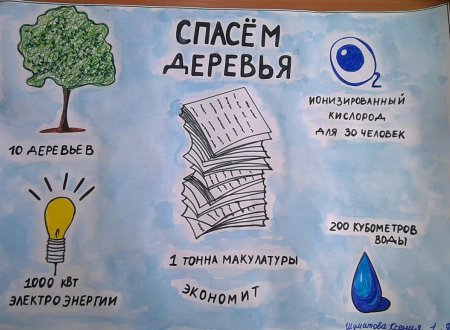 СПАСЁМ
ДЕРЕВЬЯ
10 ДЕРЕВЬЕВ
O2
ИОНИЗИРОВАННЫЙ
КИСЛОРОД
ДЛЯ 30 ЧЕЛОВЕК
1000 КВТ
ЭЛЕКТРОЭНЕРГИИ
1 ТОННА МАКУЛАТУРЫ
ЭКОНОМИТ
200 КУБОМЕТРОВ
ВОДЫ
Ксения 1